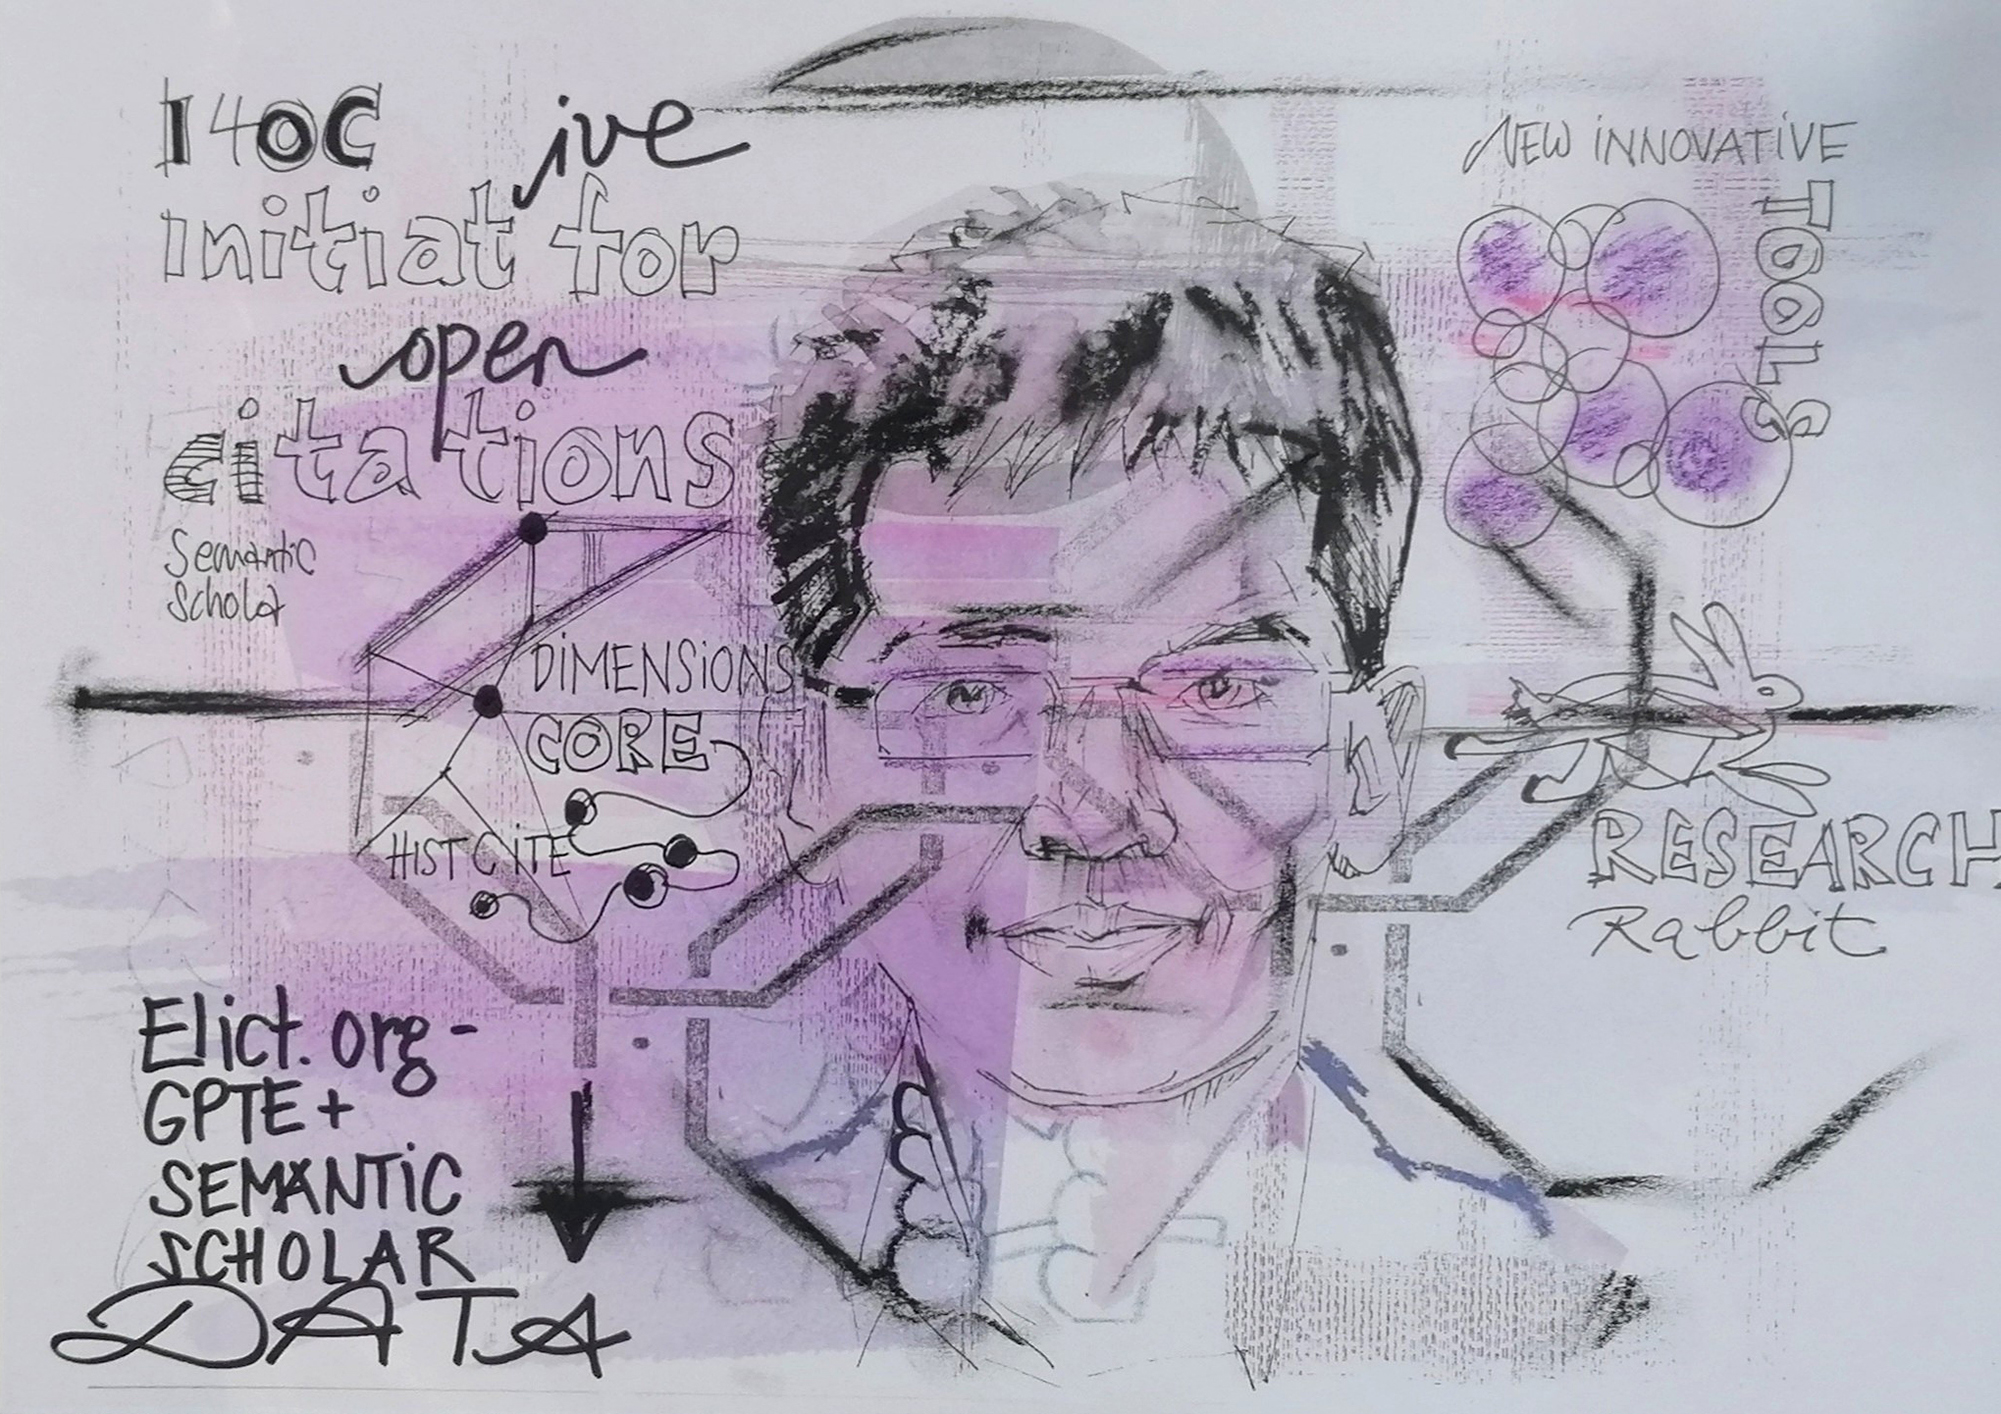 I4OC
initiative for
open
citations
Semantic
Scholar
DIMENSIONS
CORE
HISTCITE
Elict.org-
GPTE+
SEMANTIC
SCHOLAR
DATA
NEW INNOVATIVE
TOOLS
RESEARCH
Rabbit